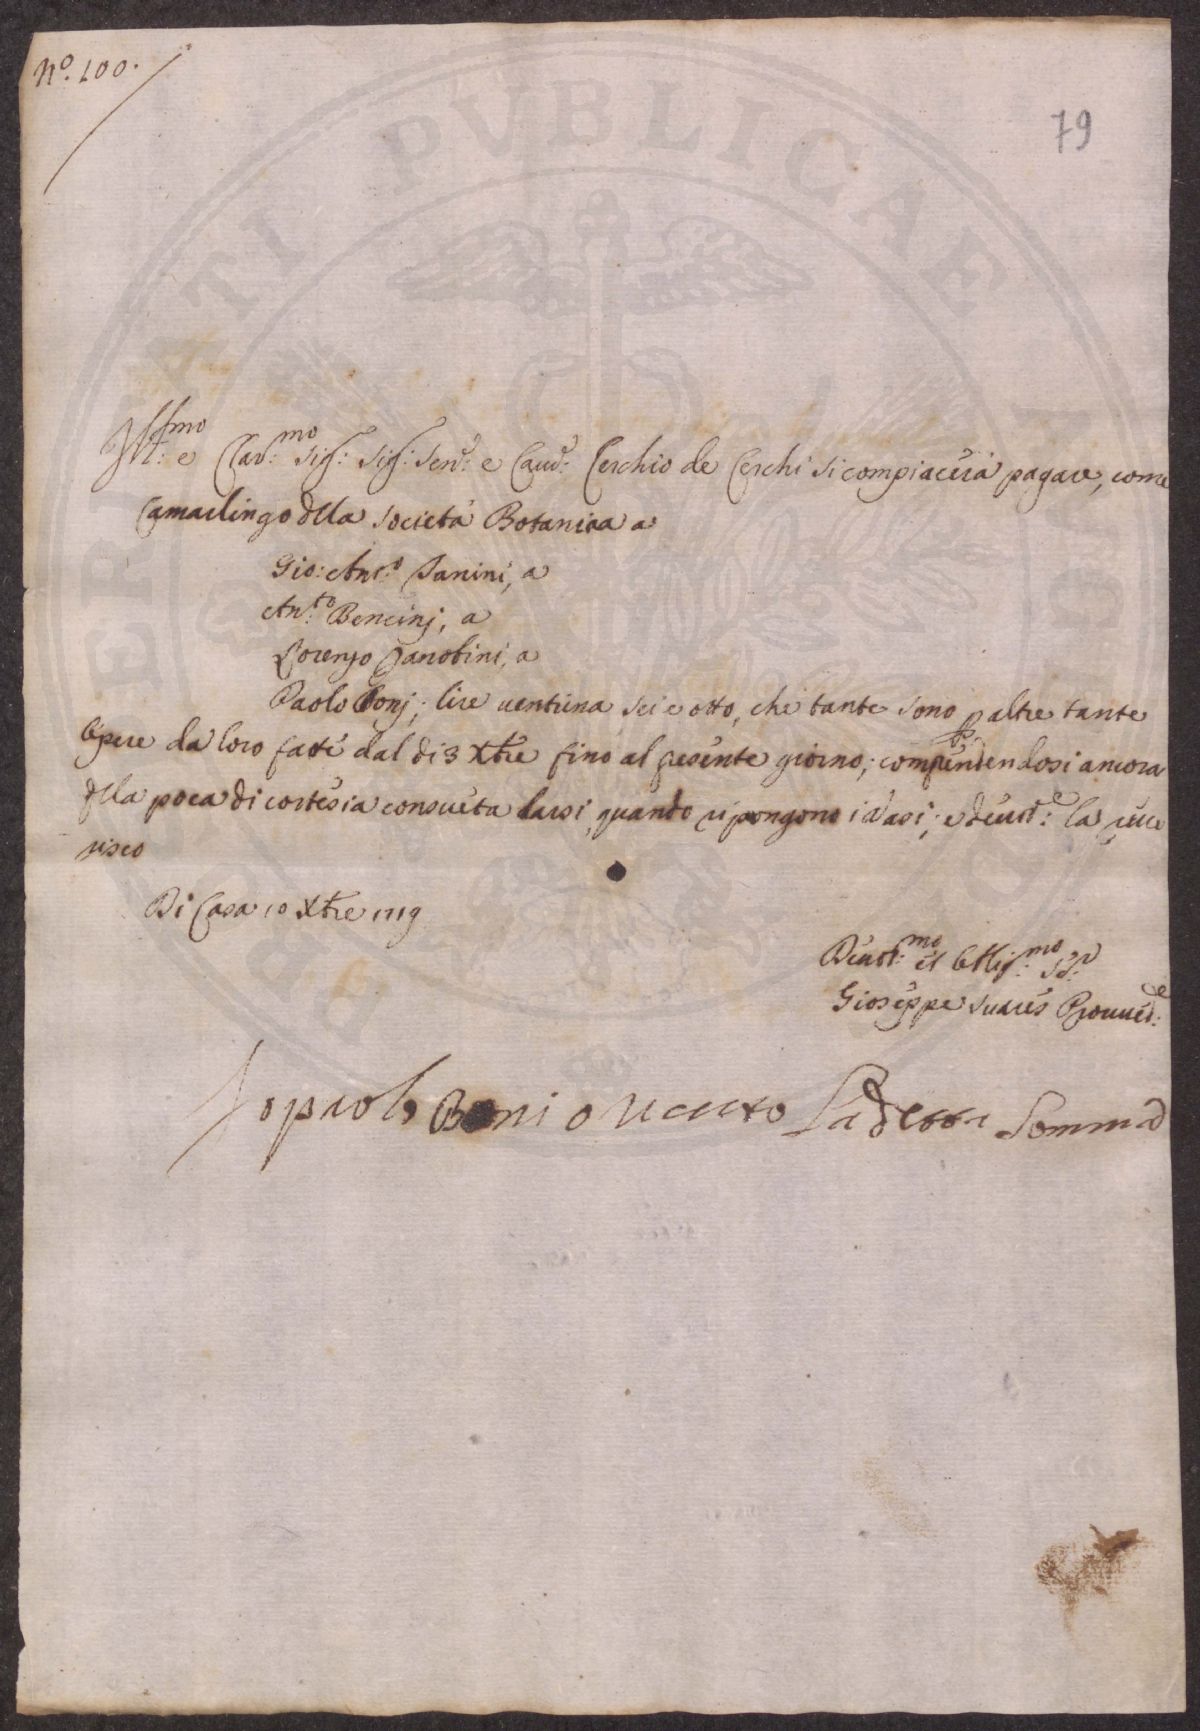 N.º 100.
79
Ill:mo e Clar:mo Sig: Sig: Sen: e Cav: Cerchio de Cerchi si compiacerà pagare, come
Camarlingo della Società Botanica a
Gio: Ant:o Janini, a
Ant:to Bencinj, a
Lorenzo Zanobini, a
Paolo Bonj; lire ventuna sei e otto, che tante sono p altre tante
Opere da loro fatte dal di 3 Xbre fino al presente giorno; comprendendosi ancora
della poca di cortesia consueta darsi, quando si pongono i vasi; e devot:e la rive
risco
Di Casa 10 Xbre 1719
Devot:mo et Obblig:mo
Gioseppe Suares Provved:e
Io paolo Boni o riceuto La detta Somma
PVBLICAE